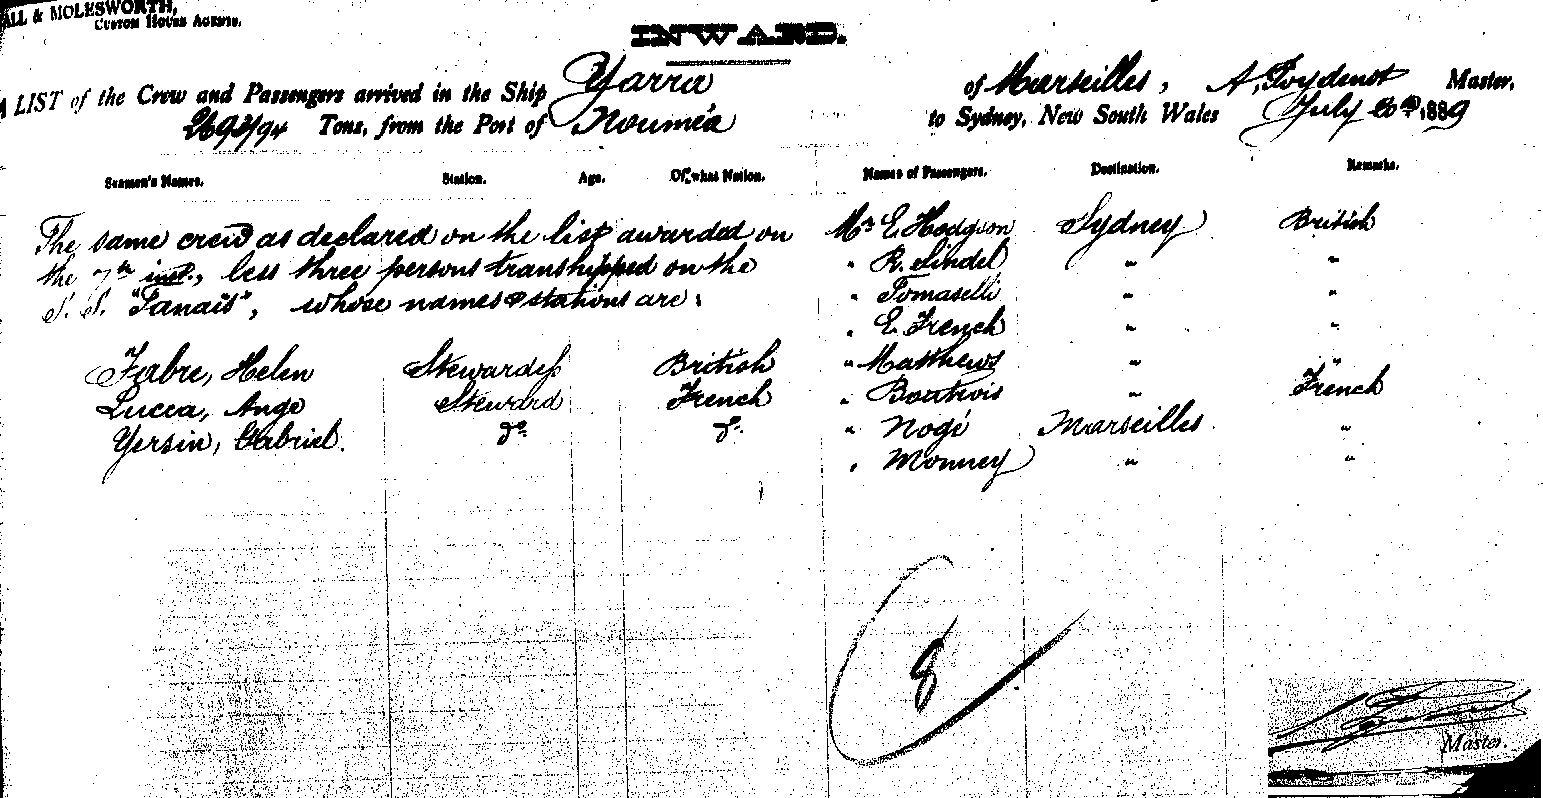 ALL & MOLESWORTH,
CUSTOM HOUSE AGENTS.
INWARD.
A LIST of the Crew and Passengers arrived in the Ship Yarra of Marseilles, A. Poydenot Master,
Tons, from the Port of Nouméa to Sydney, New South Wales July 20th 1889
Seamen's Names. Station. Age. Of what Nation. Names of Passengers. Destination. Remarks.
The same crew as declared on the list awarded on Mr E Hodgson Sydney British
the 7th inst., less three persons transhipped on the " R. Sindel " "
S. S. "Tanaïs", whose names & stations are: " Tomaselli " "
" E French " "
Fabre, Helen Stewardess British " Matthews " "
Lucca, Ange Steward French " " French
Yersin, Gabriel. do do " Nogé Marseilles "
" Monney " "
8
Master.